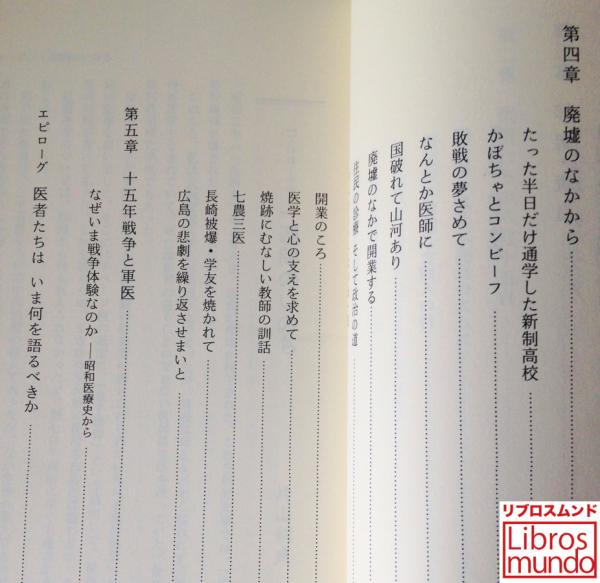 第四章 廃墟のなかから
たった半日だけ通学した新制高校
かぼちゃとコンビーフ
敗戦の夢さめて
なんとか医師に
国破れて山河あり
廃墟のなかで開業する
住民の診療 そして政治の道
開業のころ
医学と心の支えを求めて
焼跡にむなしい教師の訓話
七農三医
長崎被爆・学友を焼かれて
広島の悲劇を繰り返させまいと
第五章 十五年戦争と軍医
なぜいま戦争体験なのか――昭和医療史から
エピローグ 医者たちは いま何を語るべきか
リブロスムンド
Libros
mundo